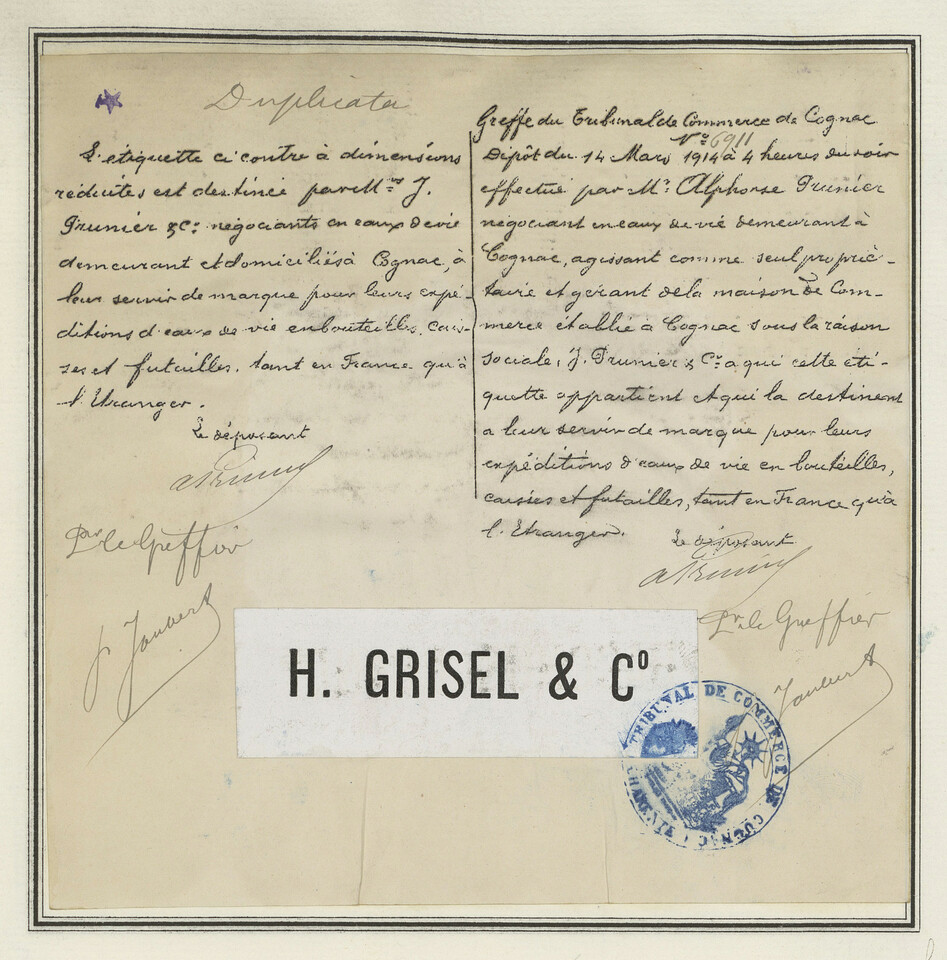 Duplicata
L'étiquette ci contre à dimensions
réduites est destinée par Mrs J.
Prunier & Cie négociants en eaux de vie
demeurant et domiciliés à Cognac, à
leur servir de marque pour leurs expé-
ditions d'eaux de vie en bouteilles, cais-
ses et futailles, tant en France qu'à
l'Etranger.
Le déposant
APrunier
Pr le Greffier
Joubert
Greffe du Tribunal de Commerce de Cognac
No 6911
Dépôt du 14 Mars 1914 à 4 heures du soir
effectué par Mr Alphonse Prunier
négociant en eaux de vie demeurant à
Cognac, agissant comme seul proprié-
taire et gérant de la maison de Com-
merce établie à Cognac sous la raison
sociale, J. Prunier & Cie a qui cette éti-
quette appartient et qui la destinent
a leur servir de marque pour leurs
expéditions d'eaux de vie en bouteilles,
caisses et futailles, tant en France qu'à
l'Etranger.
Le déposant
APrunier
Pr le Greffier
Joubert
H. GRISEL & Co
TRIBUNAL DE COMMERCE DE COGNAC
CHARENTE